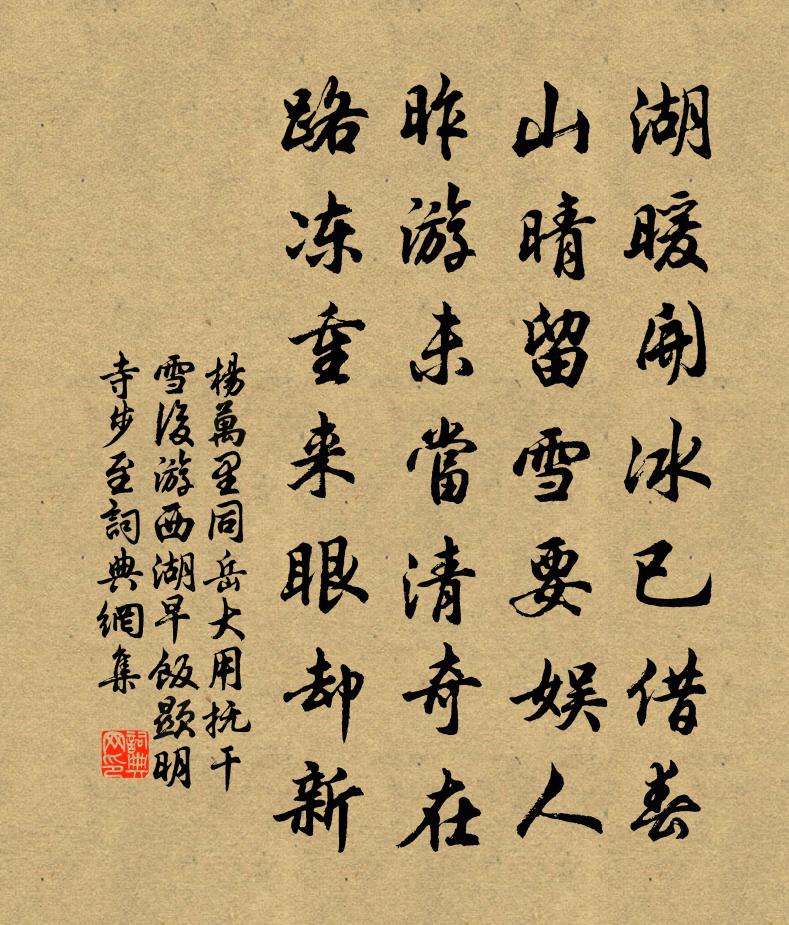 湖暖開冰已借春
山晴留雪要娱人
昨游未當清奇在
路冻重来眼却新
楊萬里同岳大用抚干
雪後游西湖早飯顯明
寺步至詞典網集
詞典網印